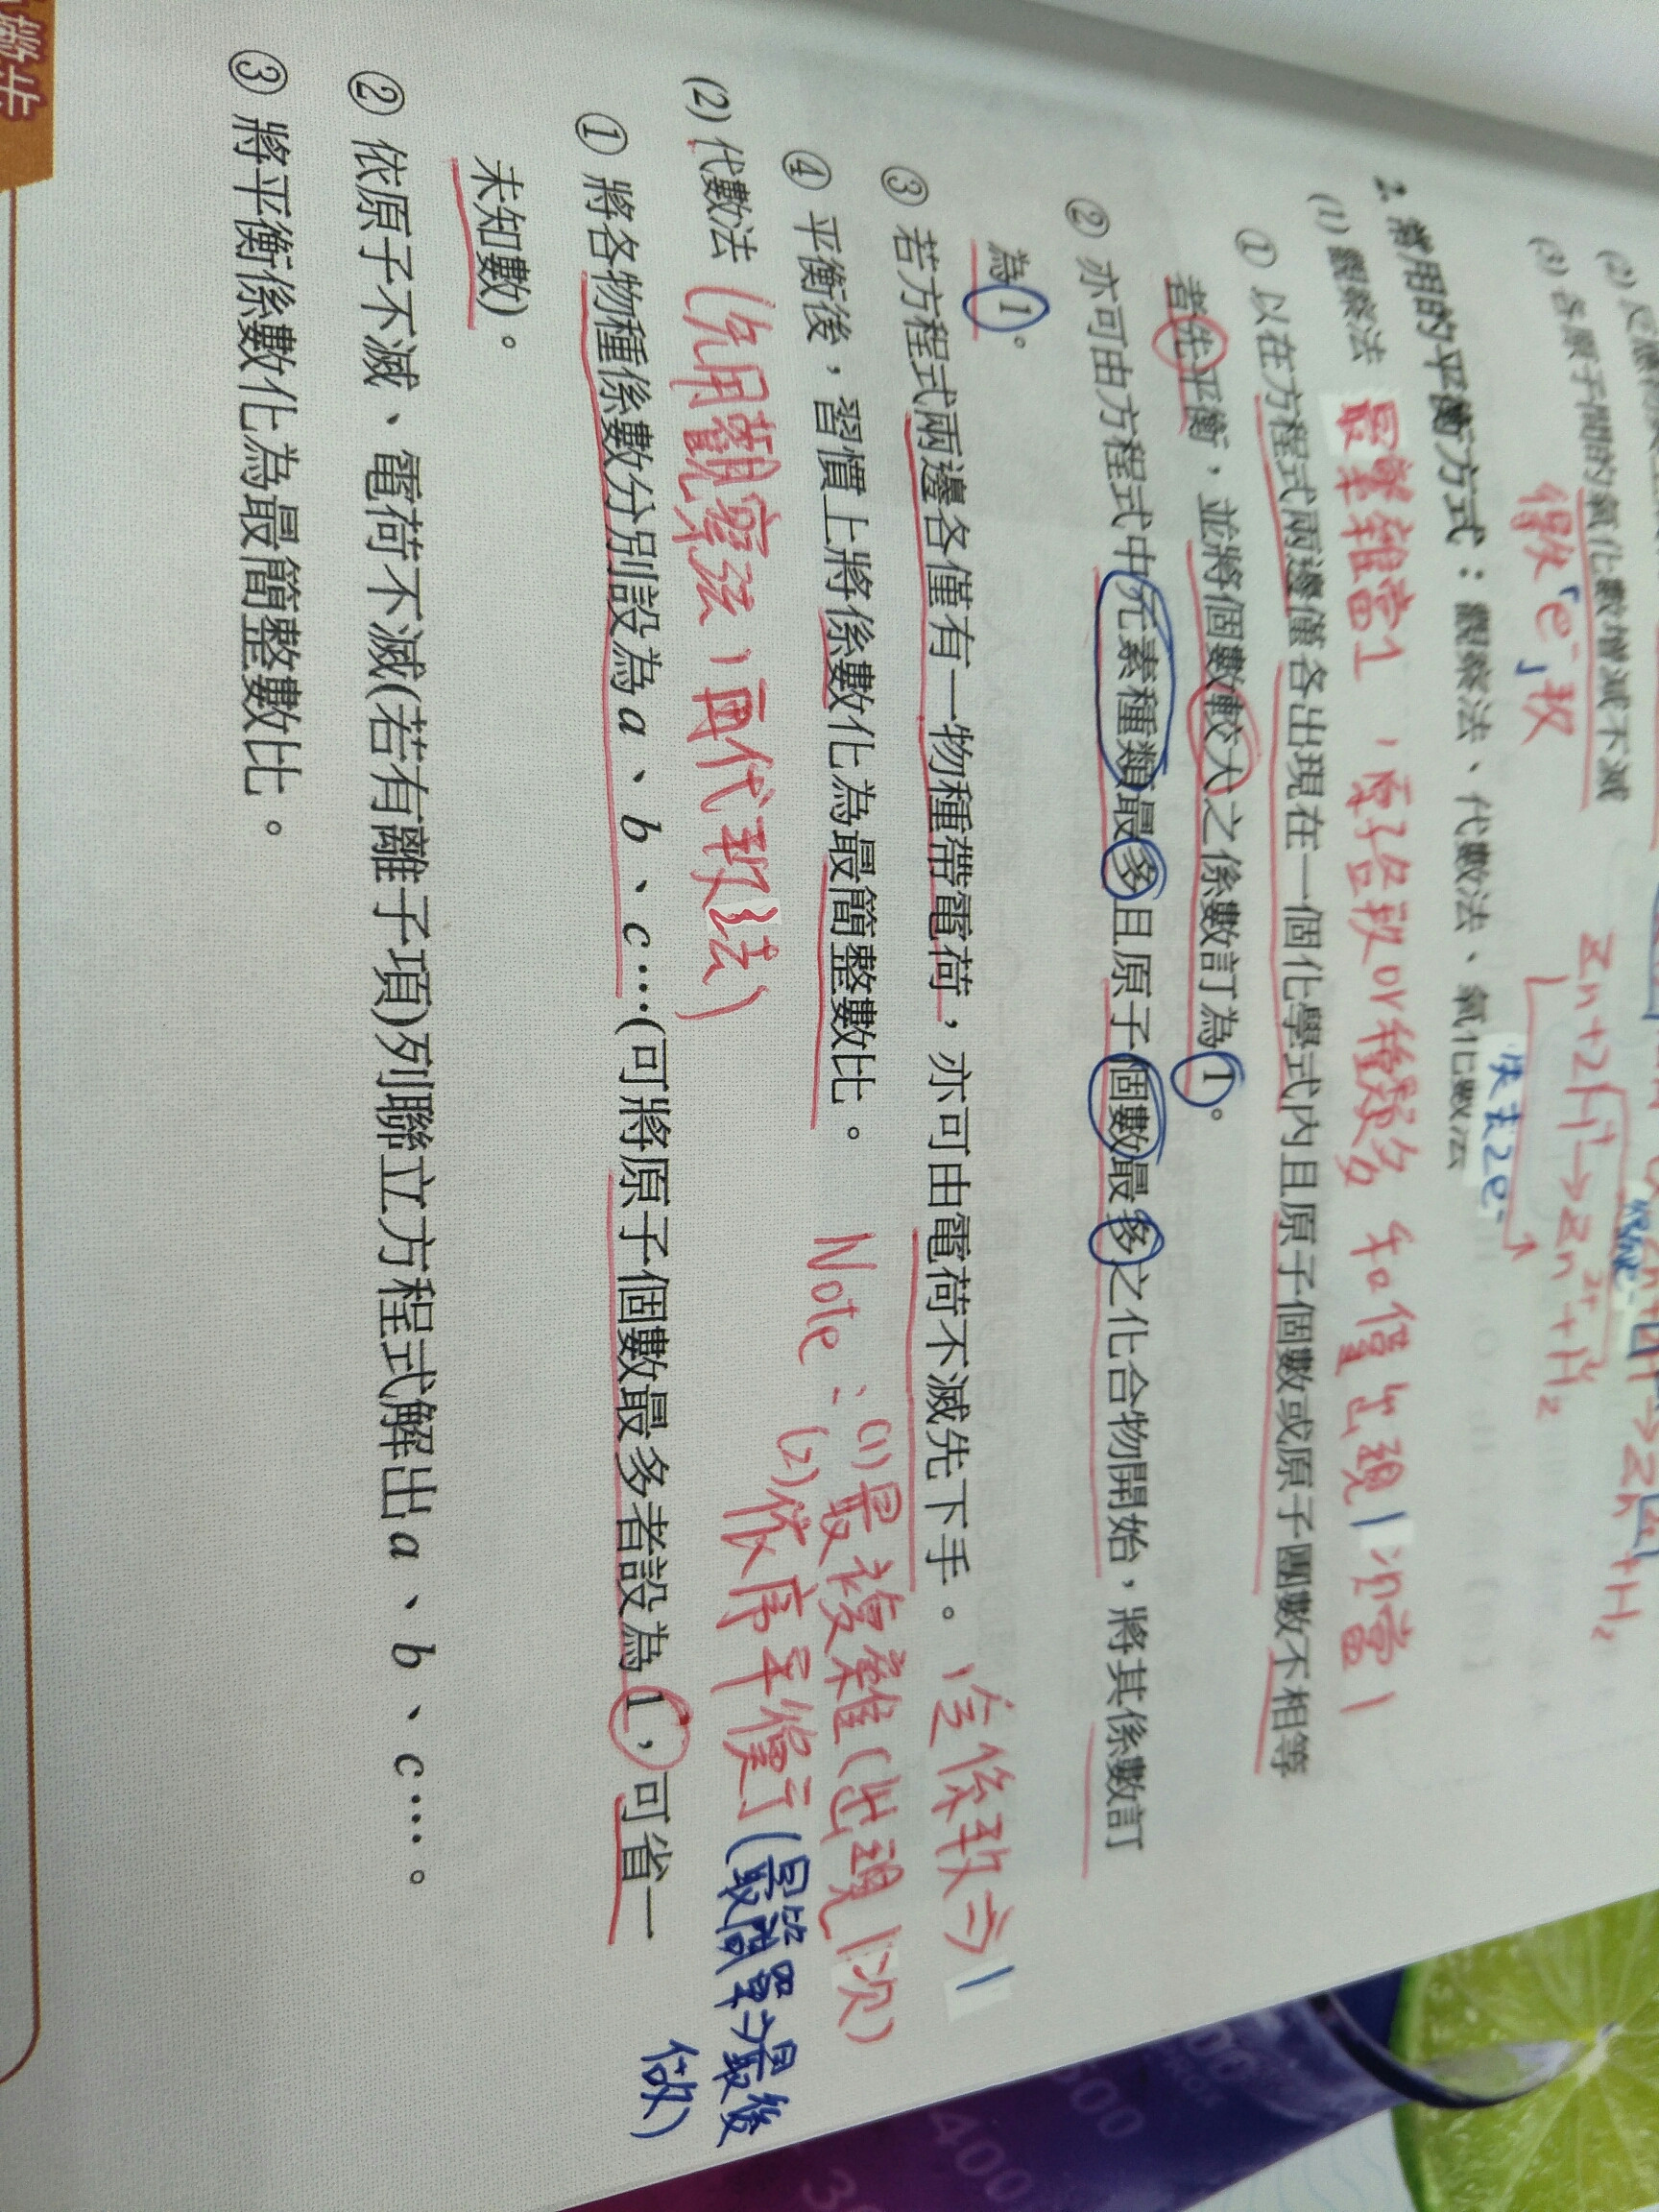 (3) 各原子間的氧化數增減不滅
得失「e⁻」數
Zn+2H⁺→Zn²⁺+H₂
失去2e⁻
2. 常用的平衡方式：觀察法、代數法、氧化數法
(1) 觀察法 最複雜當1，原子個數or種類多 和僅出現1次當1
① 以在方程式兩邊僅各出現在一個化學式內且原子個數或原子團數不相等
者先平衡，並將個數較大之係數訂為1。
② 亦可由方程式中元素種類最多且原子個數最多之化合物開始，將其係數訂
為1。
③ 若方程式兩邊各僅有一物種帶電荷，亦可由電荷不滅先下手。
④ 平衡後，習慣上將係數化為最簡整數比。
Note：(1)最複雜(出現1次)
(2)依序平衡 (最簡單最後
做)
(2) 代數法 (先用觀察法，再代數法)
① 將各物種係數分別設為a、b、c…(可將原子個數最多者設為1，可省一
未知數)。
② 依原子不滅、電荷不滅(若有離子項)列聯立方程式解出a、b、c…。
③ 將平衡係數化為最簡整數比。
500
400